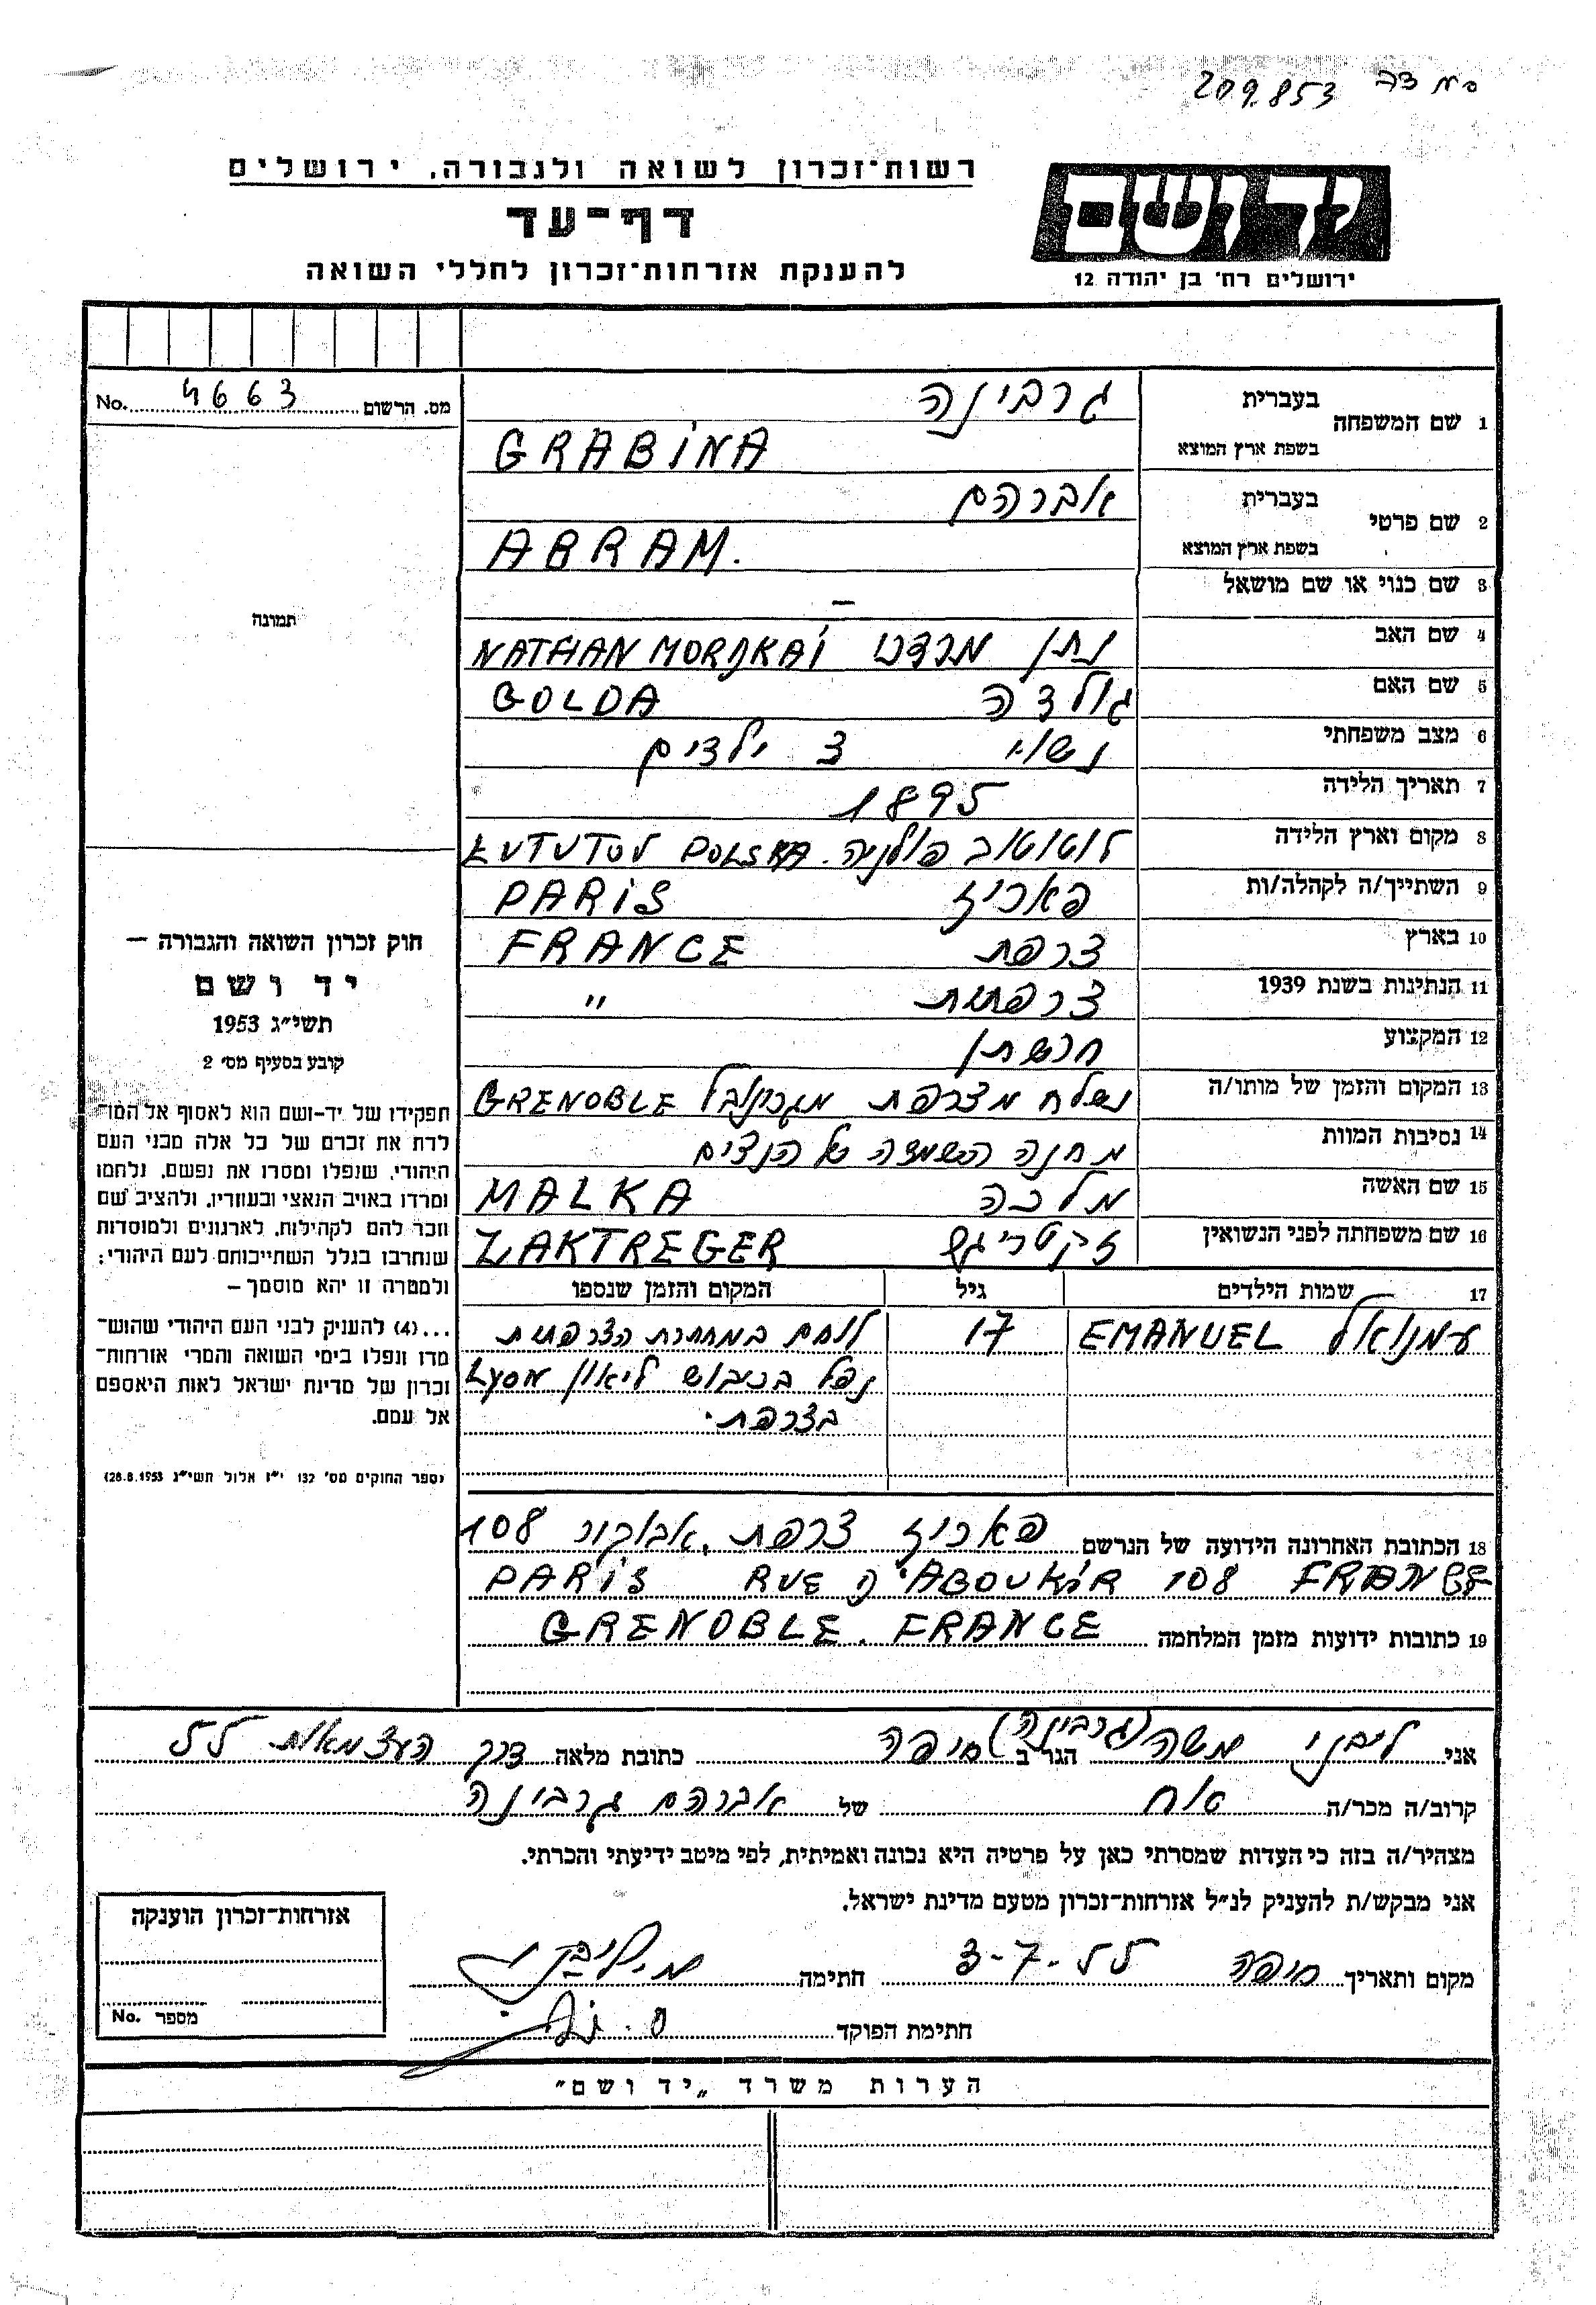 209.853
רשות־זכרון לשואה ולגבורה, ירושלים
דף־עד
להענקת אזרחות־זכרון לחללי השואה
יד ושם
ירושלים רח' בן יהודה 12
מס. הרשום 4663 No.
תמונה
חוק זכרון השואה והגבורה –
יד ושם
תשי״ג 1953
קובע בסעיף מס' 2
תפקידו של יד-ושם הוא לאסוף אל המו־
לדת את זכרם של כל אלה מבני העם
היהודי, שנפלו ומסרו את נפשם, נלחמו
ומרדו באויב הנאצי ובעוזריו, ולהציב שם
וזכר להם לקהילות, לארגונים ולמוסדות
שנחרבו בגלל השתייכותם לעם היהודי;
ולמטרה זו יהא מוסמך –
...(4) להעניק לבני העם היהודי שהוש־
מדו ונפלו בימי השואה והמרי אזרחות־
זכרון של מדינת ישראל לאות היאספם
אל עמם.
(ספר החוקים מס' 132 י״ז אלול תשי״ג 28.8.1953)
1 שם המשפחה בעברית גרבינה
בשפת ארץ המוצא GRABINA
2 שם פרטי בעברית אברהם
בשפת ארץ המוצא ABRAM.
3 שם כנוי או שם מושאל –
4 שם האב נתן מרדכי NATHAN MORDKAI
5 שם האם גולדה GOLDA
6 מצב משפחתי נשוי 3 ילדים
7 תאריך הלידה 1895
8 מקום וארץ הלידה לוטוטוב פולניה. LUTUTOV POLSKA
9 השתייך/ה לקהלה/ות פאריז PARIS
10 בארץ צרפת FRANCE
11 הנתינות בשנת 1939 צרפתית "
12 המקצוע חרשתן
13 המקום והזמן של מותו/ה נשלח מצרפת מגרנובל GRENOBLE
14 נסיבות המוות מחנה השמדה של הנצים
15 שם האשה מלכה MALKA
16 שם משפחתה לפני הנשואין זקטריגר ZAKTREGER
17 שמות הילדים גיל המקום והזמן שנספו
עמנואל EMANUEL 17 לוחם במחתרת הצרפתית
נפל בכיבוש ליאון Lyon
בצרפת.
18 הכתובת האחרונה הידועה של הנרשם פאריז צרפת, אבוקיר 108
PARIS RUE D'ABOUKIR 108 FRANCE
19 כתובות ידועות מזמן המלחמה GRENOBLE. FRANCE
אני ליבני משה (גרבינה) הגר ב חיפה כתובת מלאה דרך העצמאות 55
קרוב/ה מכר/ה אח של אברהם גרבינה
מצהיר/ה בזה כי העדות שמסרתי כאן על פרטיה היא נכונה ואמיתית, לפי מיטב ידיעתי והכרתי.
אני מבקש/ת להעניק לנ״ל אזרחות־זכרון מטעם מדינת ישראל.
מקום ותאריך חיפה 3-7-55 חתימה מ. ליבני
חתימת הפוקד
אזרחות־זכרון הוענקה
מספר No.
הערות משרד „יד ושם"